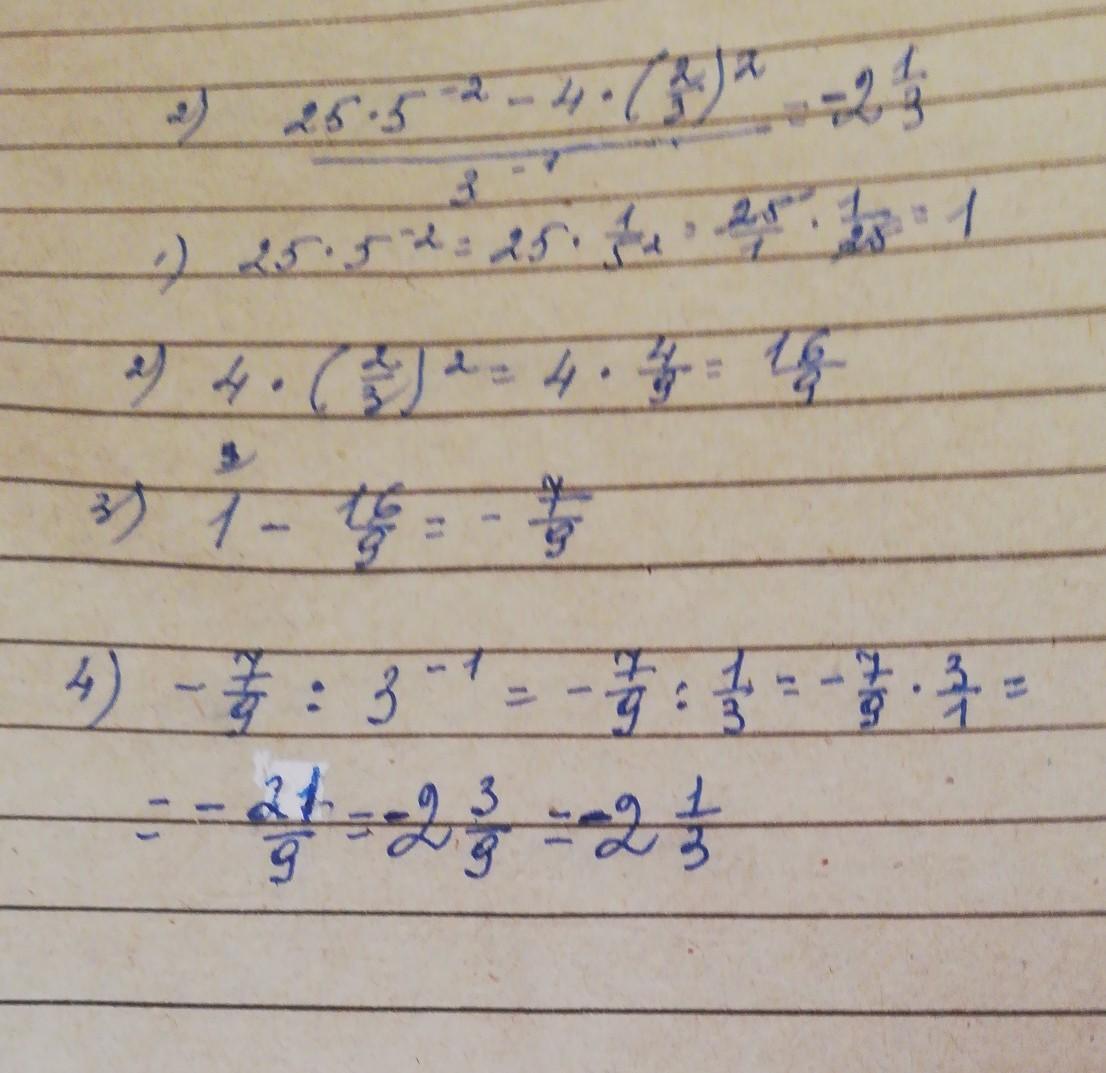 2) (25·5⁻² − 4·(2/3)²)/3⁻¹ = −2 1/3
1) 25·5⁻² = 25·1/5² = 25/1 · 1/25 = 1
2) 4·(2/3)² = 4·4/9 = 16/9
9
3) 1 − 16/9 = −7/9
4) −7/9 : 3⁻¹ = −7/9 : 1/3 = −7/9 · 3/1 =
= −21/9 = −2 3/9 = −2 1/3